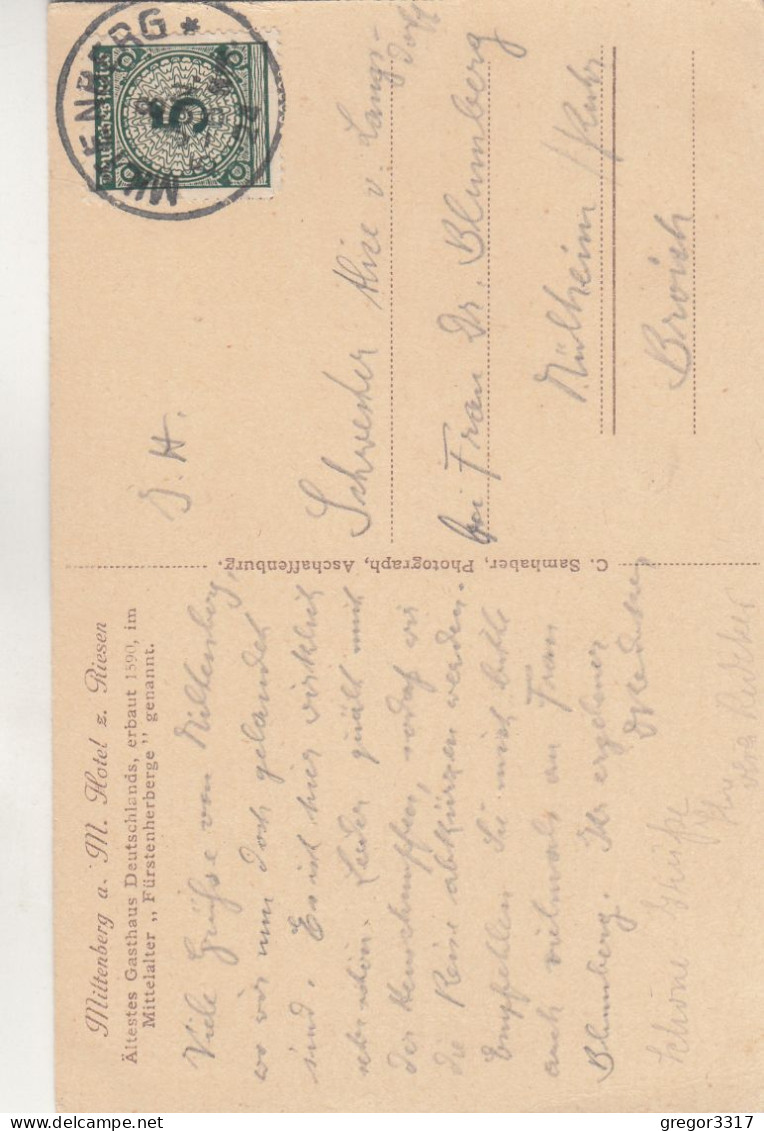 Miltenberg a. M. Hotel z. Riesen
Ältestes Gasthaus Deutschlands, erbaut 1590, im
Mittelalter „Fürstenherberge" genannt.
Viele Grüsse von Miltenberg,
wo wir nun doch gelandet
sind. Es ist hier wirklich
sehr schön. Leider quält mich
der Heuschnupfen, sodass wir
die Reise abkürzen werden.
Empfehlen Sie mich bitte
auch vielmals an Frau
Blumberg. Ihr ergebener
Schöne Grüsse
Ihre
C. Samhaber, Photograph, Aschaffenburg.
MILTENBERG *
DEUTSCHES REICH
5
S. H.
Schwester Alice v. Langs-
dorff
bei Frau Dr. Blumberg
Mülheim /Ruhr
Broich
gregor3317